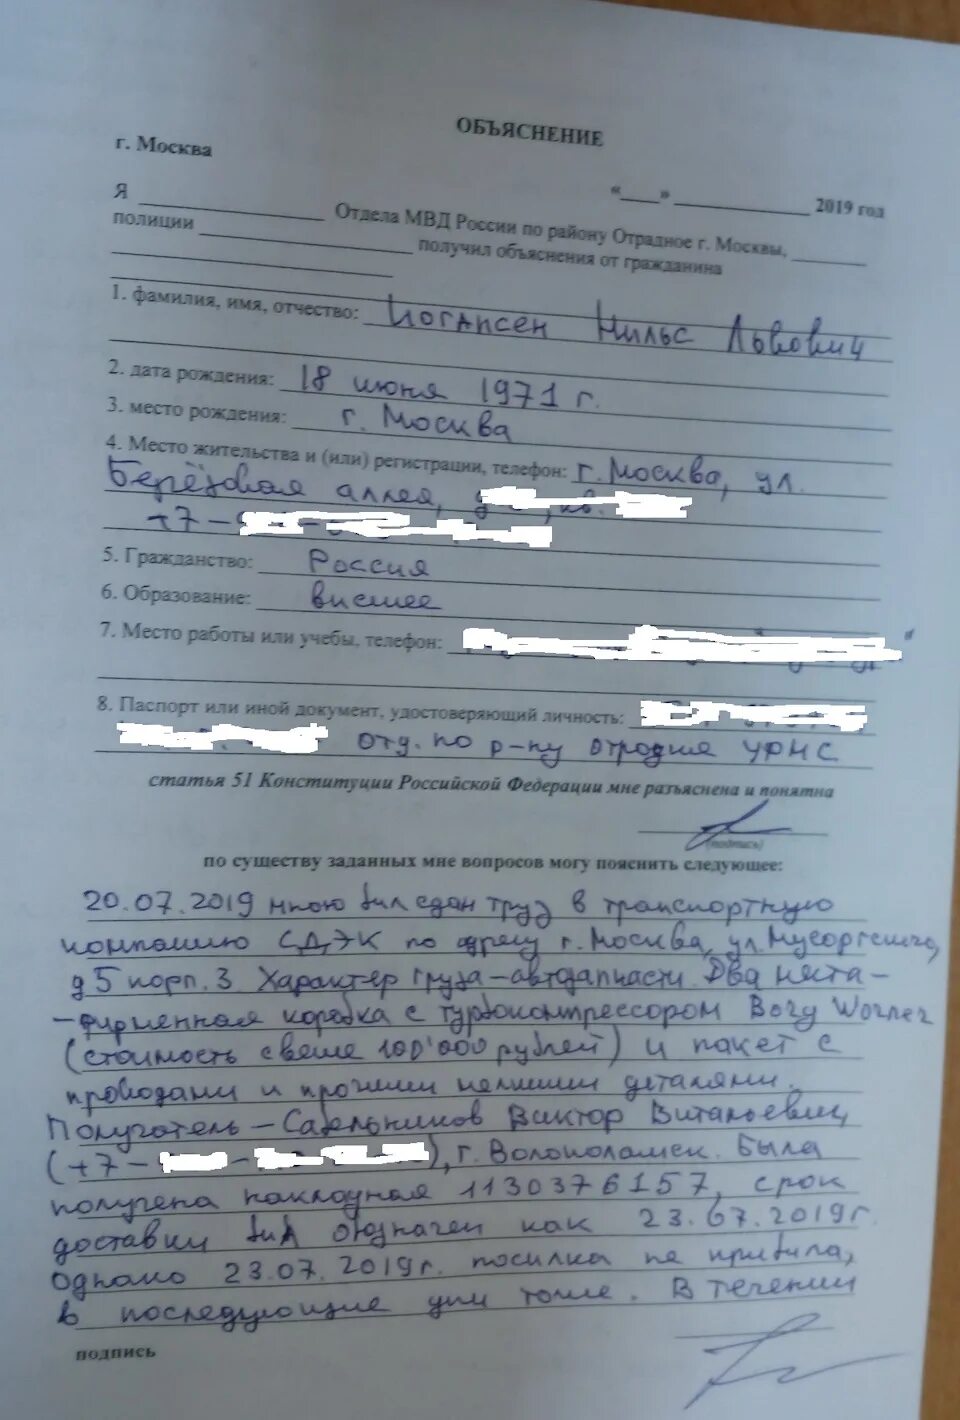 ОБЪЯСНЕНИЕ
г. Москва
«___» ____________ 2019 год
Я ____________ Отдела МВД России по району Отрадное г. Москвы, ______
полиции ____________ получил объяснения от гражданина
1. фамилия, имя, отчество: Йогансен Нильс Львович
2. дата рождения: 18 июня 1971 г.
3. место рождения: г. Москва
4. Место жительства и (или) регистрации, телефон: г. Москва, ул.
Берёзовая аллея, кв.
+7-
5. Гражданство: Россия
6. Образование: высшее
7. Место работы или учебы, телефон:
8. Паспорт или иной документ, удостоверяющий личность:
отд. по р-ну УФМС
статья 51 Конституции Российской Федерации мне разъяснена и понятна
(подпись)
по существу заданных мне вопросов могу пояснить следующее:
20.07.2019 мною был сдан груз в транспортную
компанию СДЭК по адресу г. Москва, ул. Мусоргского,
д 5 корп. 3. Характер груза – автозапчасти. Два места –
– фирменная коробка с турбокомпрессором Borg Warner
(стоимость свыше 100'000 рублей) и пакет с
проводами и прочими мелкими деталями.
Получатель – Виктор Витальевич
(+7- ), г. Волоколамск. Была
получена накладная 1130376157, срок
доставки был обозначен как 23.07.2019г.
Однако 23.07.2019г. посылка не прибыла,
в последующие дни тоже. В течении
подпись